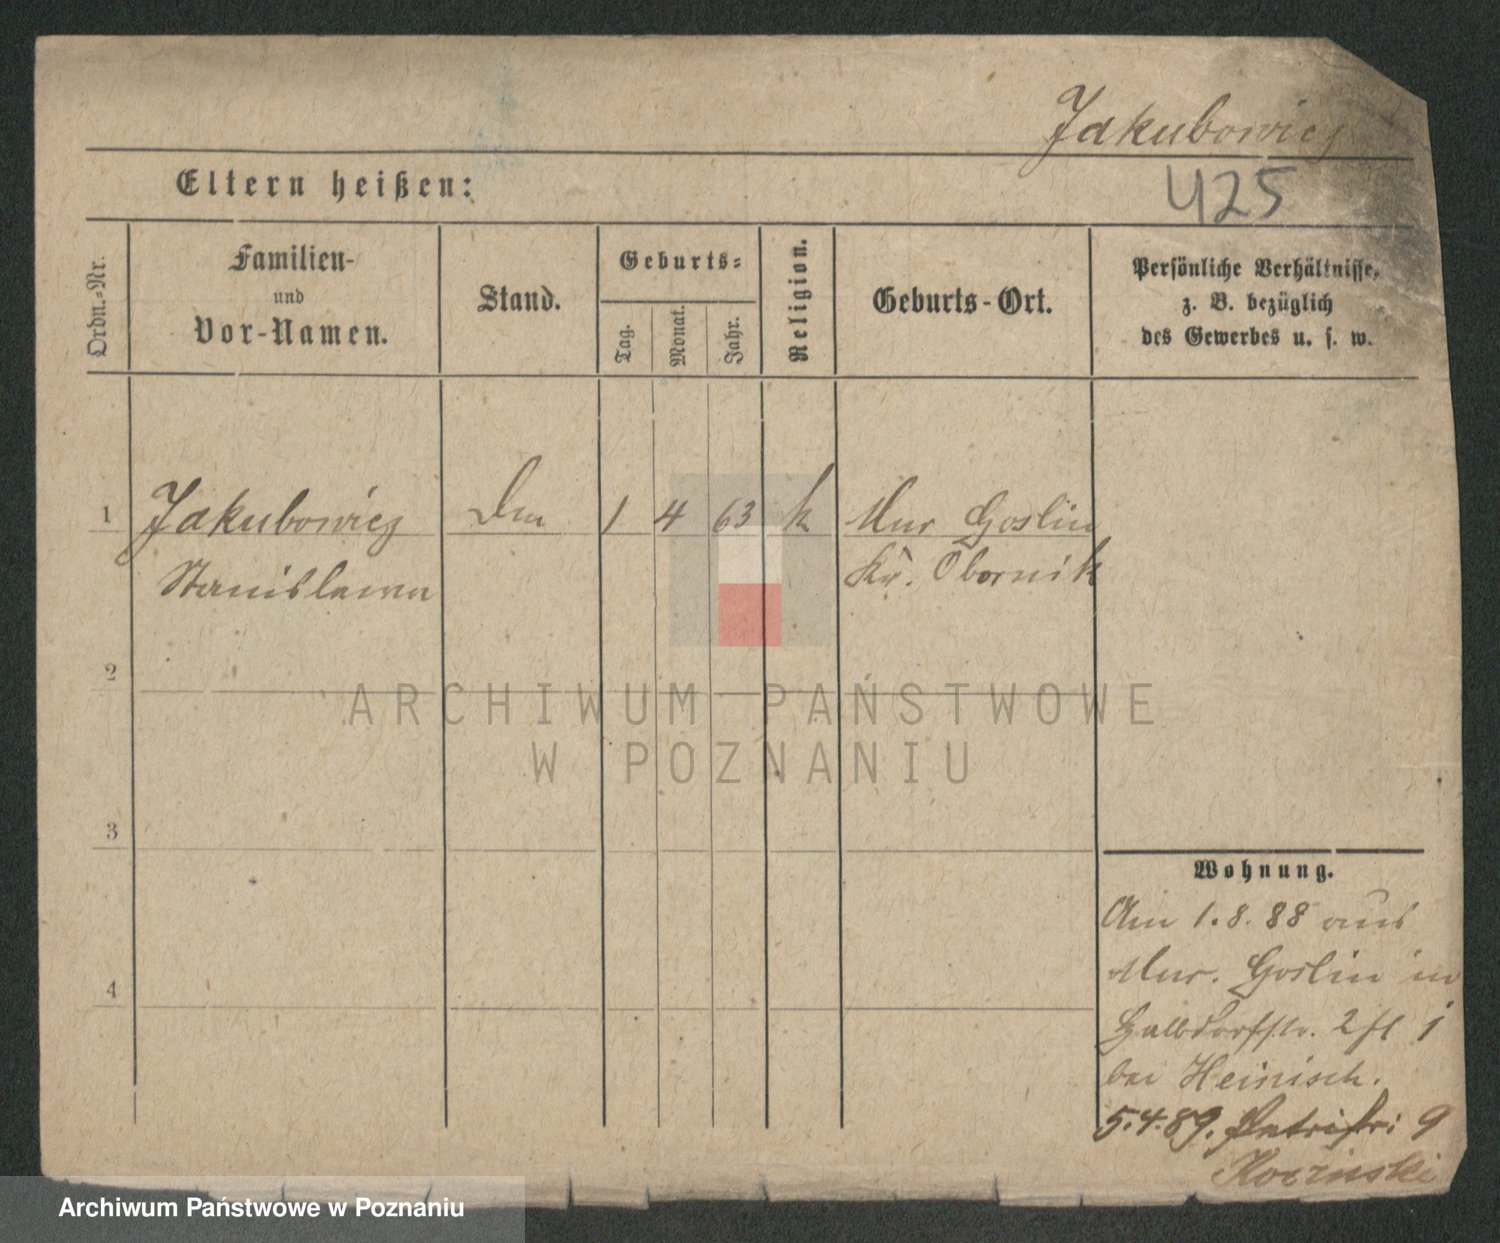 Jakubowicz
425
Eltern heißen:
Ordn.-Nr.
Familien-
und
Vor-Namen.
Stand.
Geburts-
Tag.
Monat.
Jahr.
Religion.
Geburts-Ort.
Persönliche Verhältnisse,
z. B. bezüglich
des Gewerbes u. s. w.
1 Jakubowicz 1 4 63 k Mur Goslin
Stanislawa Kr. Obornik
2
3
4
Wohnung.
Am 1.8.88 aus
Mur. Goslin in
Halbdorfstr. 2
bei Heinisch.
5.4.89. Petristr: 9
ARCHIWUM PAŃSTWOWE
W POZNANIU
Archiwum Państwowe w Poznaniu